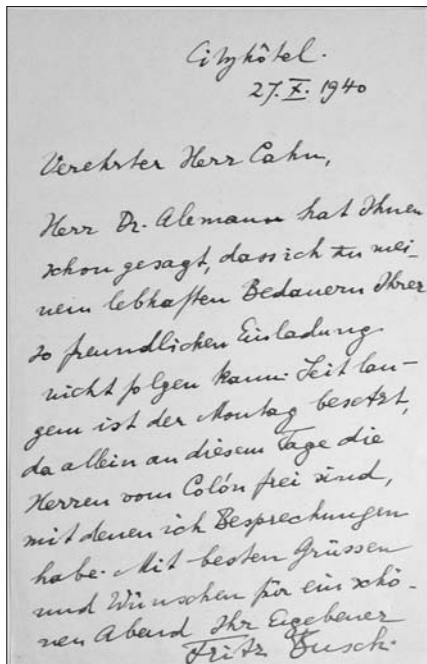 Cityhôtel.
27. X. 1940
Verehrter Herr Cahn,
Herr Dr. Alemann hat Ihnen
schon gesagt, dass ich zu mei-
nem lebhaften Bedauern Ihrer
so freundlichen Einladung
nicht folgen kann. Seit lan-
gem ist der Montag besetzt,
da allein an diesem Tage die
Herren vom Colón frei sind,
mit denen ich Besprechungen
habe. Mit besten Grüssen
und Wünschen für ein schö-
nen Abend Ihr Ergebener
Fritz Busch.